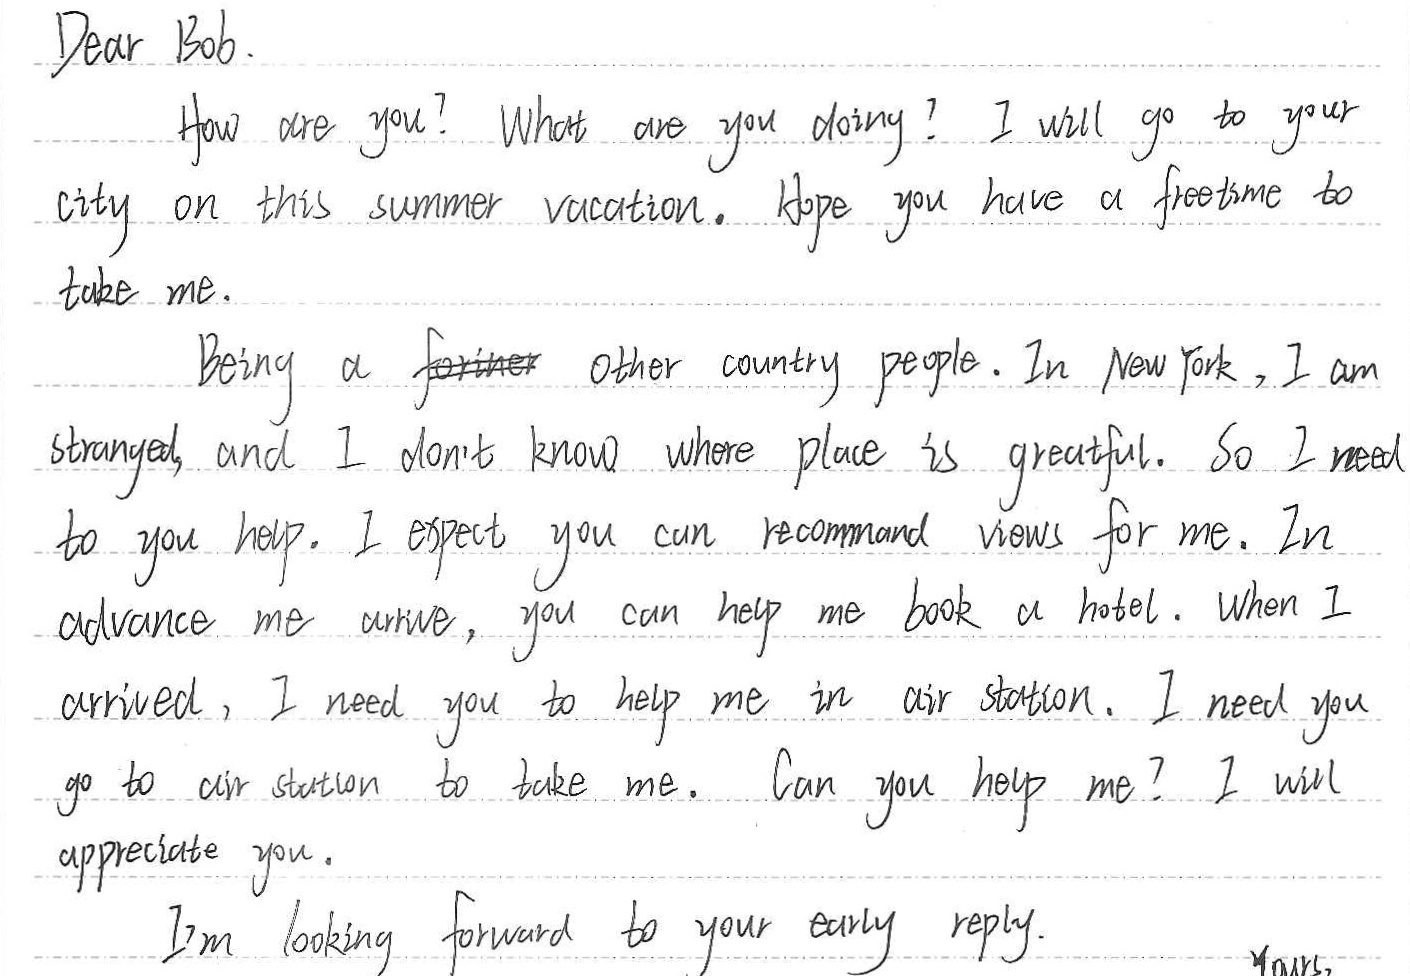 Dear Bob.
How are you? What are you doing? I will go to your
city on this summer vacation. Hope you have a freetime to
take me.
Being a other country people. In New York, I am
stranged, and I don't know where place is greatful. So I need
to you help. I expect you can recommand views for me. In
advance me arrive, you can help me book a hotel. When I
arrived, I need you to help me in air station. I need you
go to air station to take me. Can you help me? I will
appreciate you.
I'm looking forward to your early reply.
Yours,